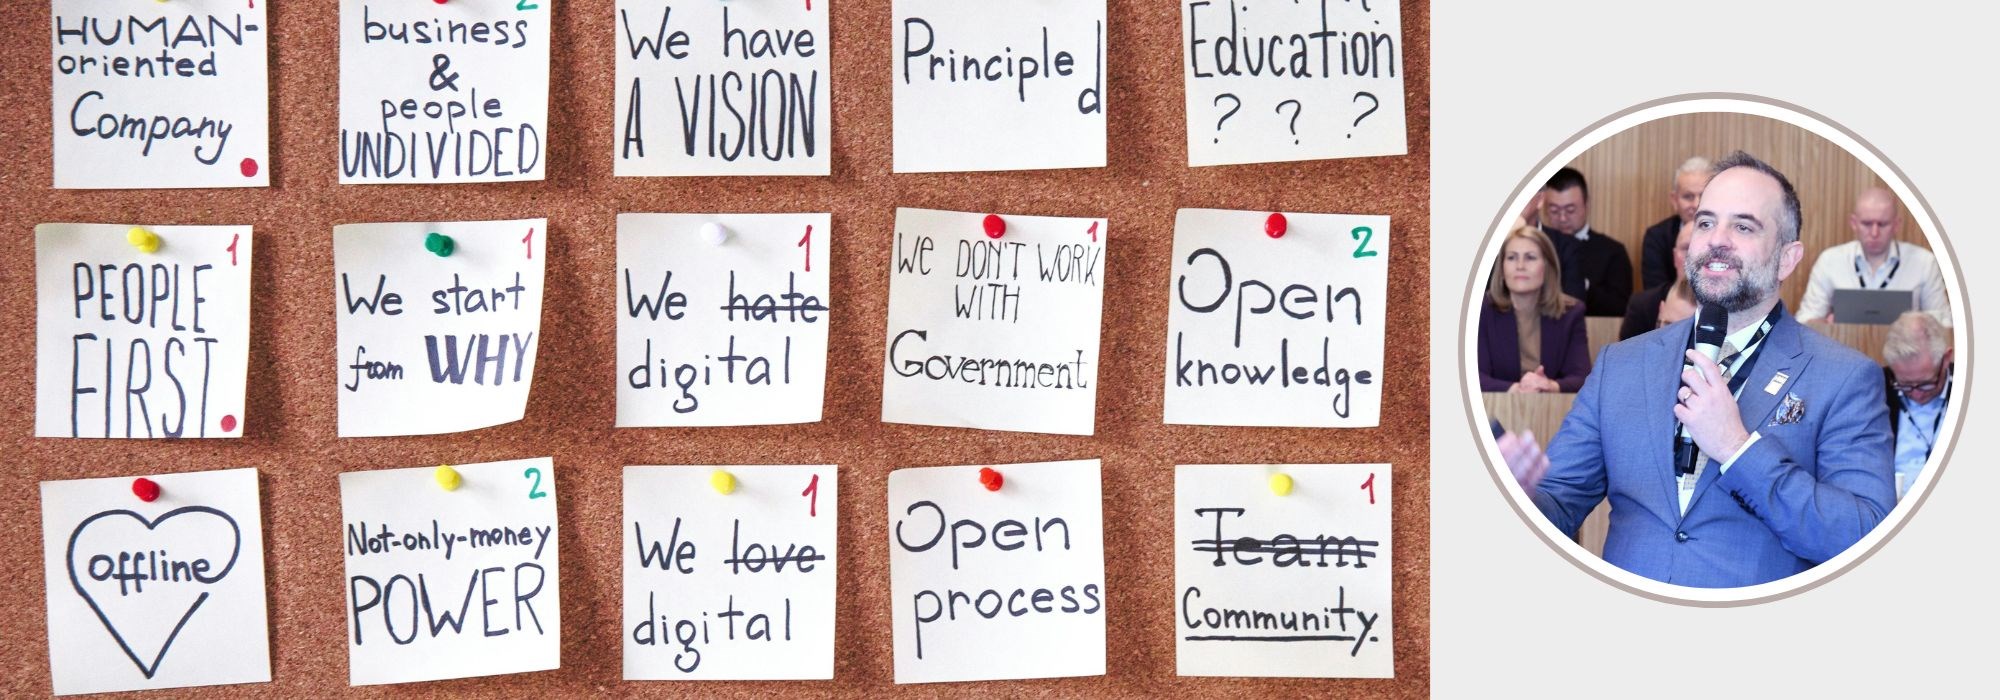 1
HUMAN-
oriented
Company
2
business
&
people
UNDIVIDED
1
We have
A VISION
Principled
Education
? ? ?
1
PEOPLE
FIRST
1
We start
from WHY
1
We hate
digital
1
We DON'T WORK
WITH
Government
2
Open
knowledge
offline
2
Not-only-money
POWER
1
We love
digital
Open
process
1
Team
Community.